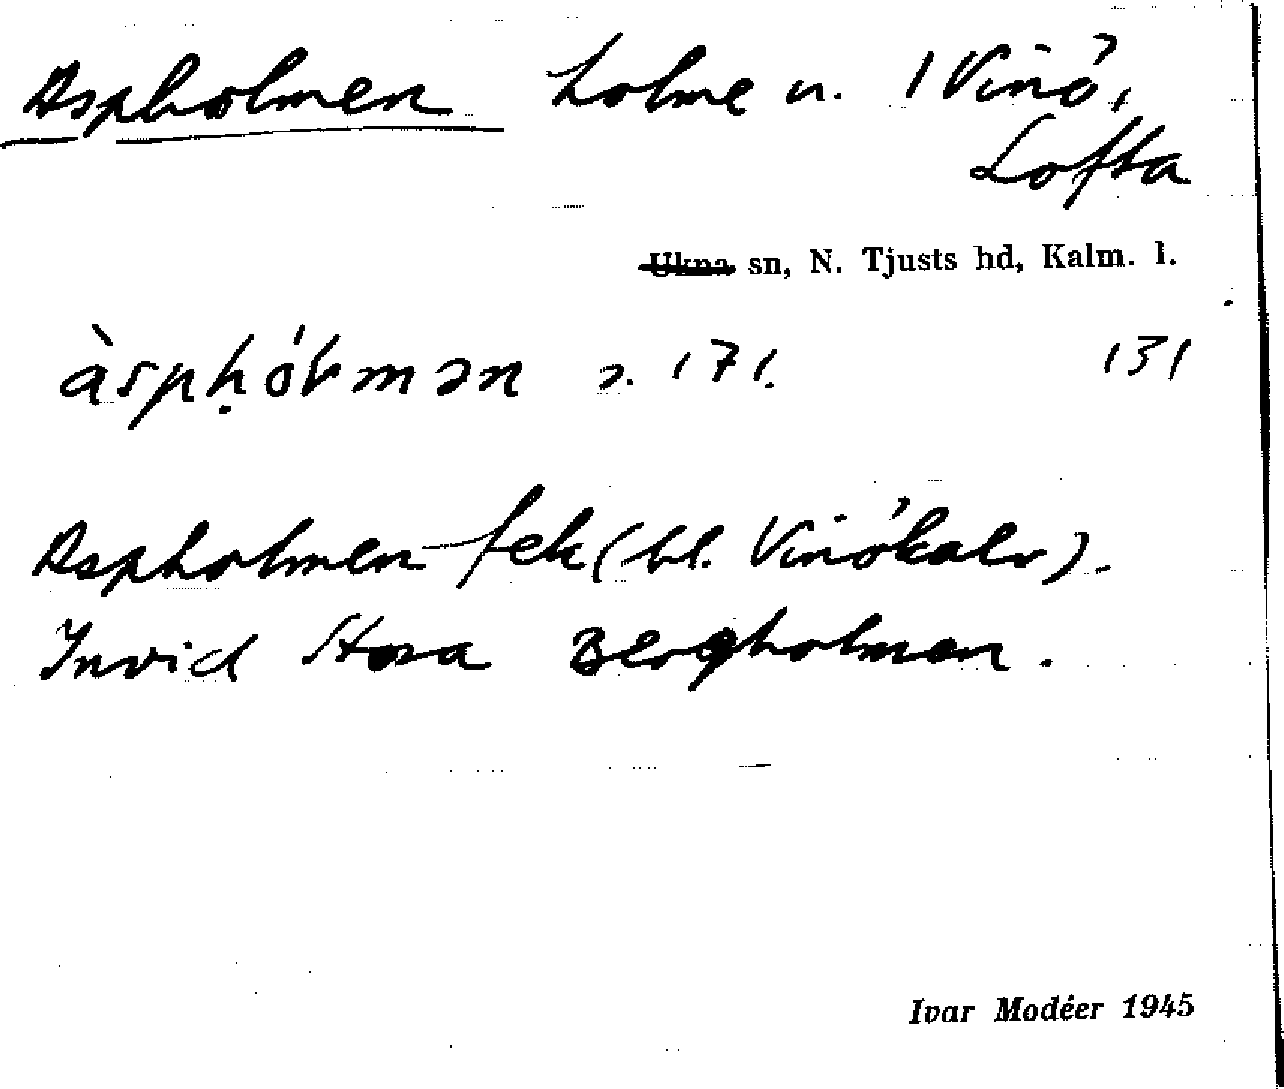 Aspholmen holme u. 1 Vinö,
Lofta
Ukna sn, N. Tjusts hd, Kalm. l.
àspḥóɫmən 171. 131
Aspholmen fek (bl. Vinökalv).
Invid Stora Bergholmen.
Ivar Modéer 1945